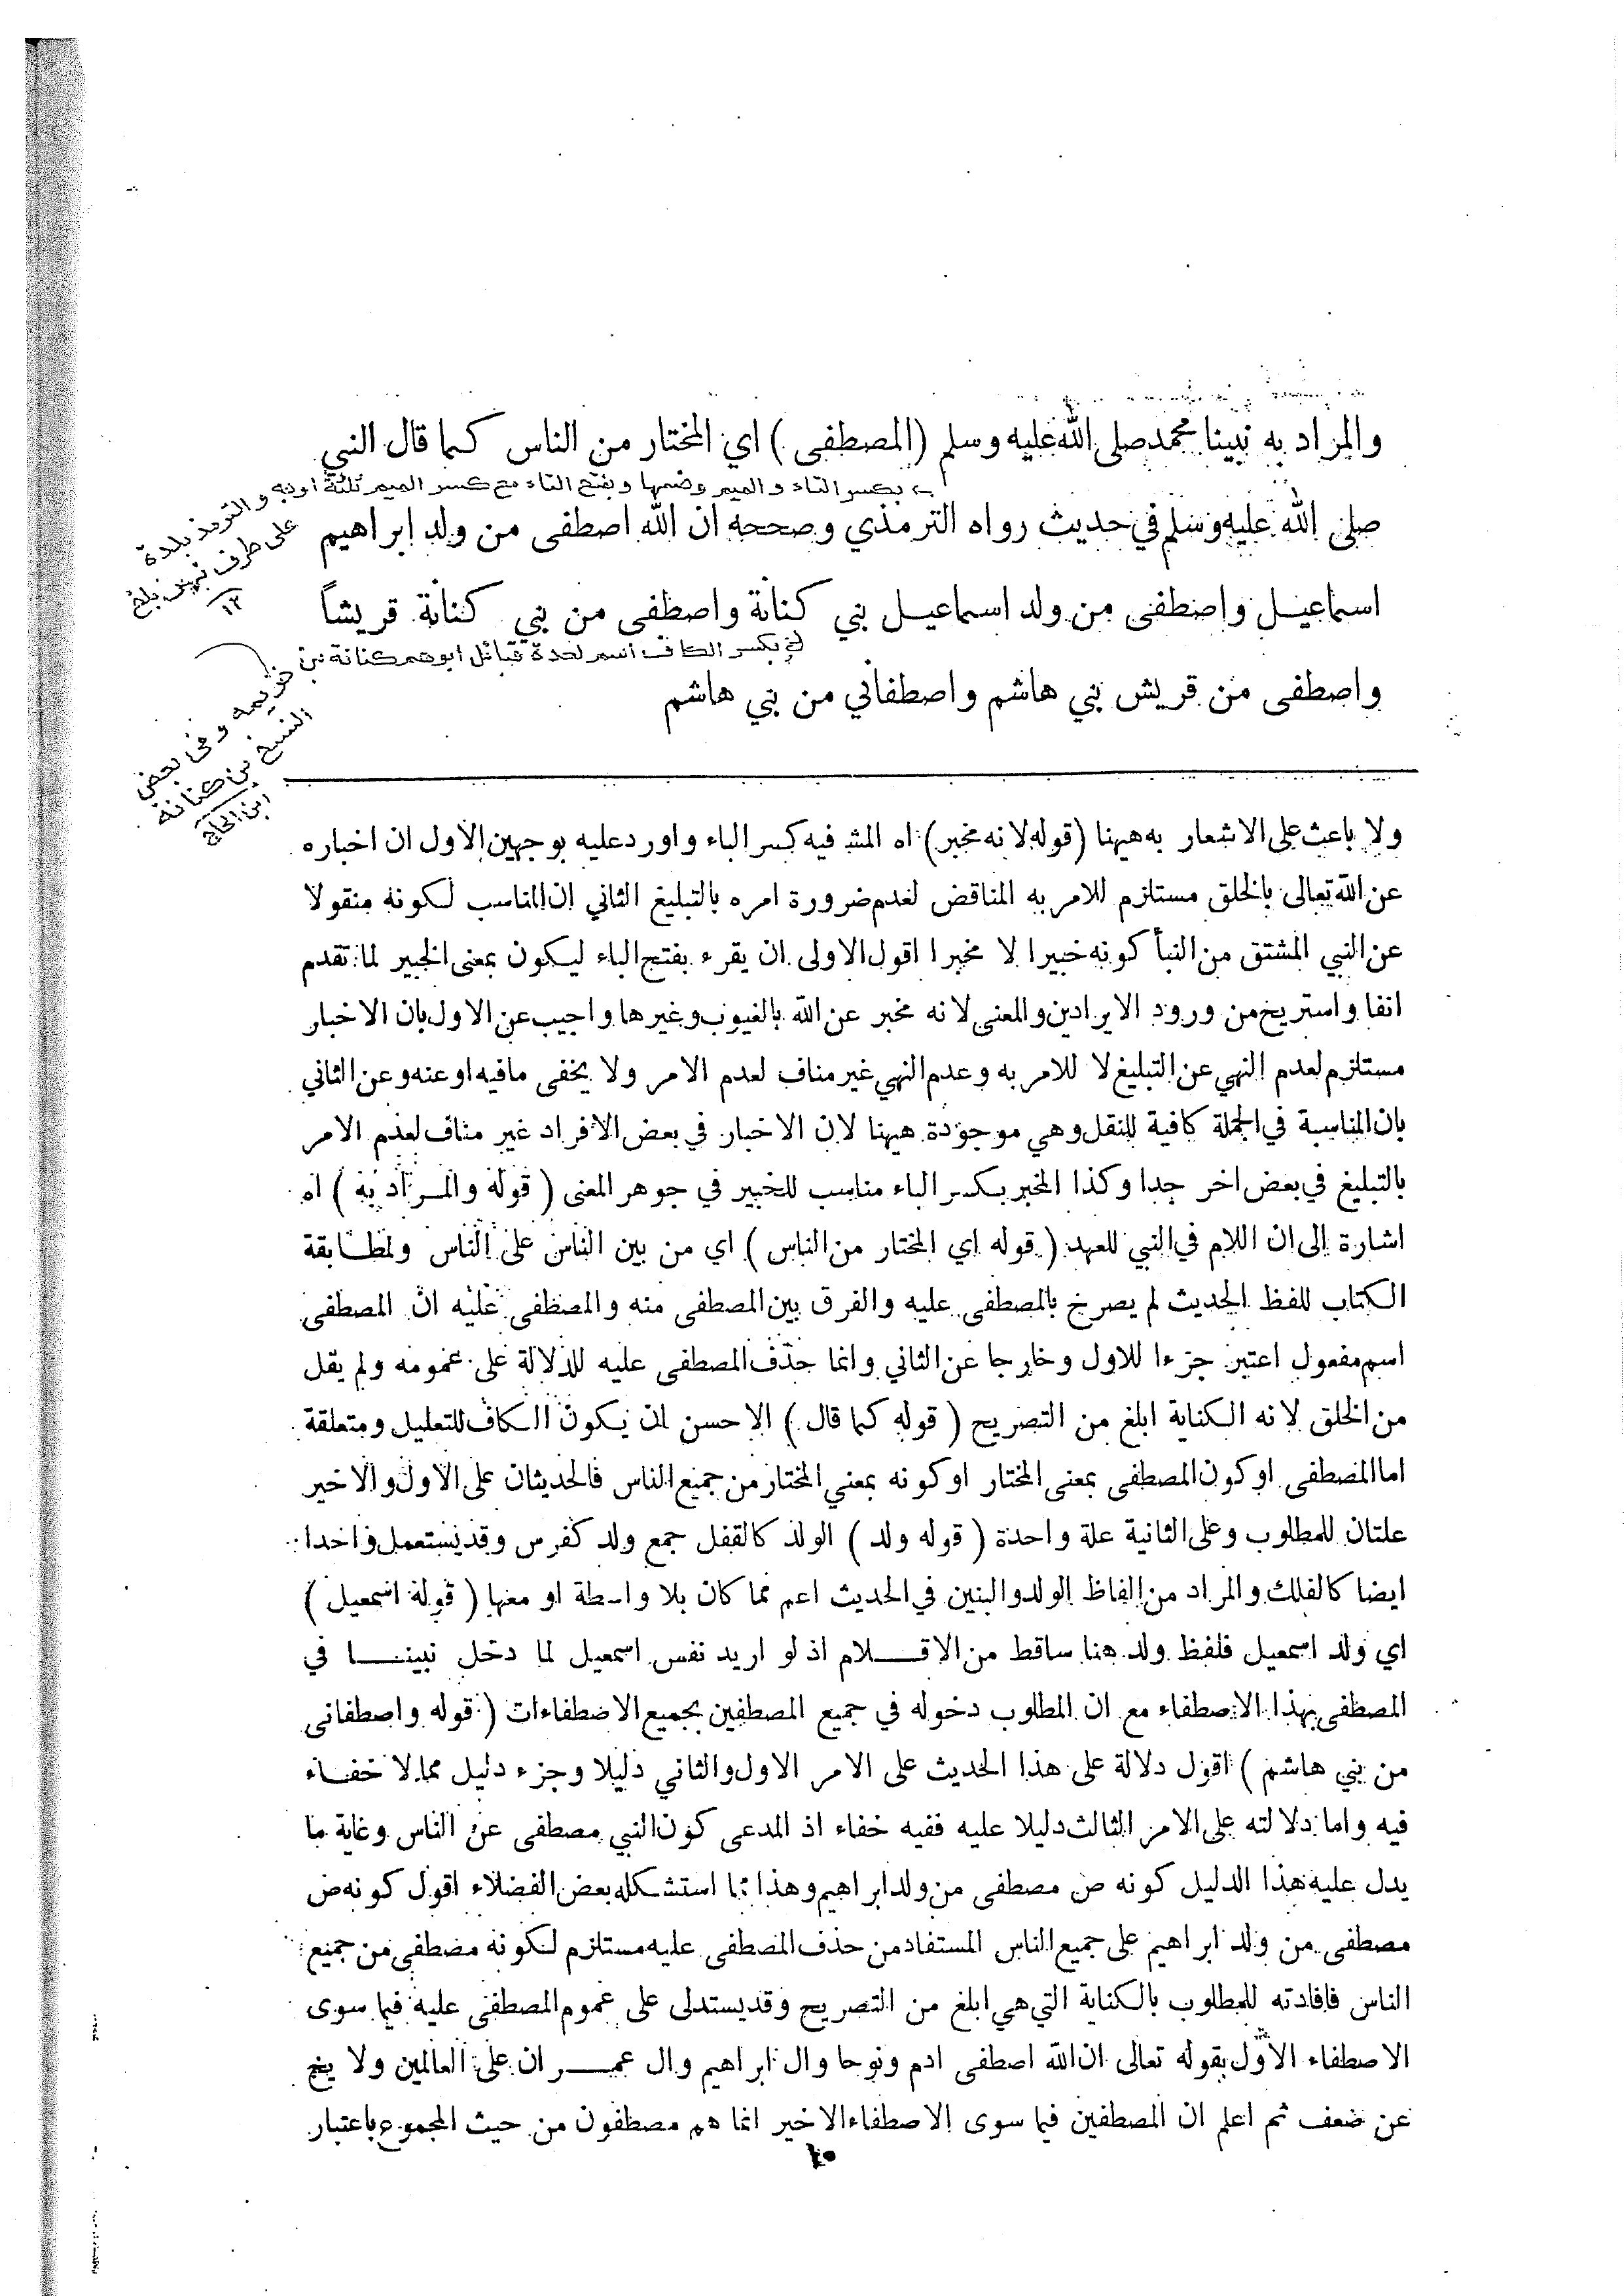 والمراد به نبينا محمد صلى الله عليه وسلم (المصطفى) اي المختار من الناس كما قال النبي
بكسر التاء والميم وضمها وبفتح التاء مع كسر الميم ثلثة اوجه والترمذ بلدة
على طرف نهر بلخ
١٢
صلى الله عليه وسلم في حديث رواه الترمذي وصححه ان الله اصطفى من ولد ابراهيم
اسماعيل واصطفى من ولد اسماعيل بني كنانة واصطفى من بني كنانة قريشاً
بكسر الكاف اسم لعدة قبائل ابوهم كنانة بن
خزيمه وفى بعض
النسخ بن كنانة
ابن الحاج
واصطفى من قريش بني هاشم واصطفاني من بني هاشم
ولا باعث على الاشعار به ههنا (قوله لانه مخبر) اه المش فيه كسر الباء واورد عليه بوجهين الاول ان اخباره
عن الله تعالى بالخلق مستلزم للامر به المناقض لعدم ضرورة امره بالتبليغ الثاني ان المناسب لكونه منقولا
عن النبي المشتق من النبأ كونه خبيرا لا مخبرا اقول الاولى ان يقرء بفتح الباء ليكون بمعنى الخبير لما تقدم
انفا واستريح من ورود الايرادين والمعنى لانه مخبر عن الله بالغيوب وغيرها واجيب عن الاول بان الاخبار
مستلزم لعدم النهي عن التبليغ لا للامر به وعدم النهي غير مناف لعدم الامر ولا يخفى مافيه اوعنه وعن الثاني
بان المناسبة في الجملة كافية للنقل وهي موجودة ههنا لان الاخبار في بعض الافراد غير مناف لعدم الامر
بالتبليغ في بعض اخر جدا وكذا المخبر بكسر الباء مناسب للخبير في جوهر المعنى (قوله والمراد به) اه
اشارة الى ان اللام في النبي للعهد (قوله اي المختار من الناس) اي من بين الناس على الناس ولمطابقة
الكتاب للفظ الحديث لم يصرح بالمصطفى عليه والفرق بين المصطفى منه والمصطفى عليه ان المصطفى
اسم مفعول اعتبر جزءا للاول وخارجا عن الثاني وانما حذف المصطفى عليه للدلالة على عمومه ولم يقل
من الخلق لانه الكناية ابلغ من التصريح (قوله كما قال) الاحسن ان يكون الكاف للتعليل ومتعلقة
اما المصطفى او كون المصطفى بمعنى المختار او كونه بمعنى المختار من جميع الناس فالحديثان على الاول والاخير
علتان للمطلوب وعلى الثانية علة واحدة (قوله ولد) الولد كالقفل جمع ولد كفرس وقد يستعمل واحدا
ايضا كالفلك والمراد من الفاظ الولد والبنين في الحديث اعم مما كان بلا واسطة او معها (قوله اسمعيل)
اي ولد اسمعيل فلفظ ولد هنا ساقط من الاقلام اذ لو اريد نفس اسمعيل لما دخل نبينا في
المصطفى بهذا الاصطفاء مع ان المطلوب دخوله في جميع المصطفين بجميع الاصطفاءات (قوله واصطفانى
من بني هاشم) اقول دلالة على هذا الحديث على الامر الاول والثاني دليلا وجزء دليل مما لا خفاء
فيه واما دلالته على الامر الثالث دليلا عليه ففيه خفاء اذ المدعى كون النبي مصطفى عن الناس وغاية ما
يدل عليه هذا الدليل كونه ص مصطفى من ولد ابراهيم وهذا مما استشكله بعض الفضلاء اقول كونه ص
مصطفى من ولد ابراهيم على جميع الناس المستفاد من حذف المصطفى عليه مستلزم لكونه مصطفى من جميع
الناس فافادته للمطلوب بالكناية التي هي ابلغ من التصريح وقد يستدلى على عموم المصطفى عليه فيما سوى
الاصطفاء الاول بقوله تعالى ان الله اصطفى ادم ونوحا وال ابراهيم وال عمران على العالمين ولا يخ
عن ضعف ثم اعلم ان المصطفين فيما سوى الاصطفاء الاخير انما هم مصطفون من حيث المجموع باعتبار